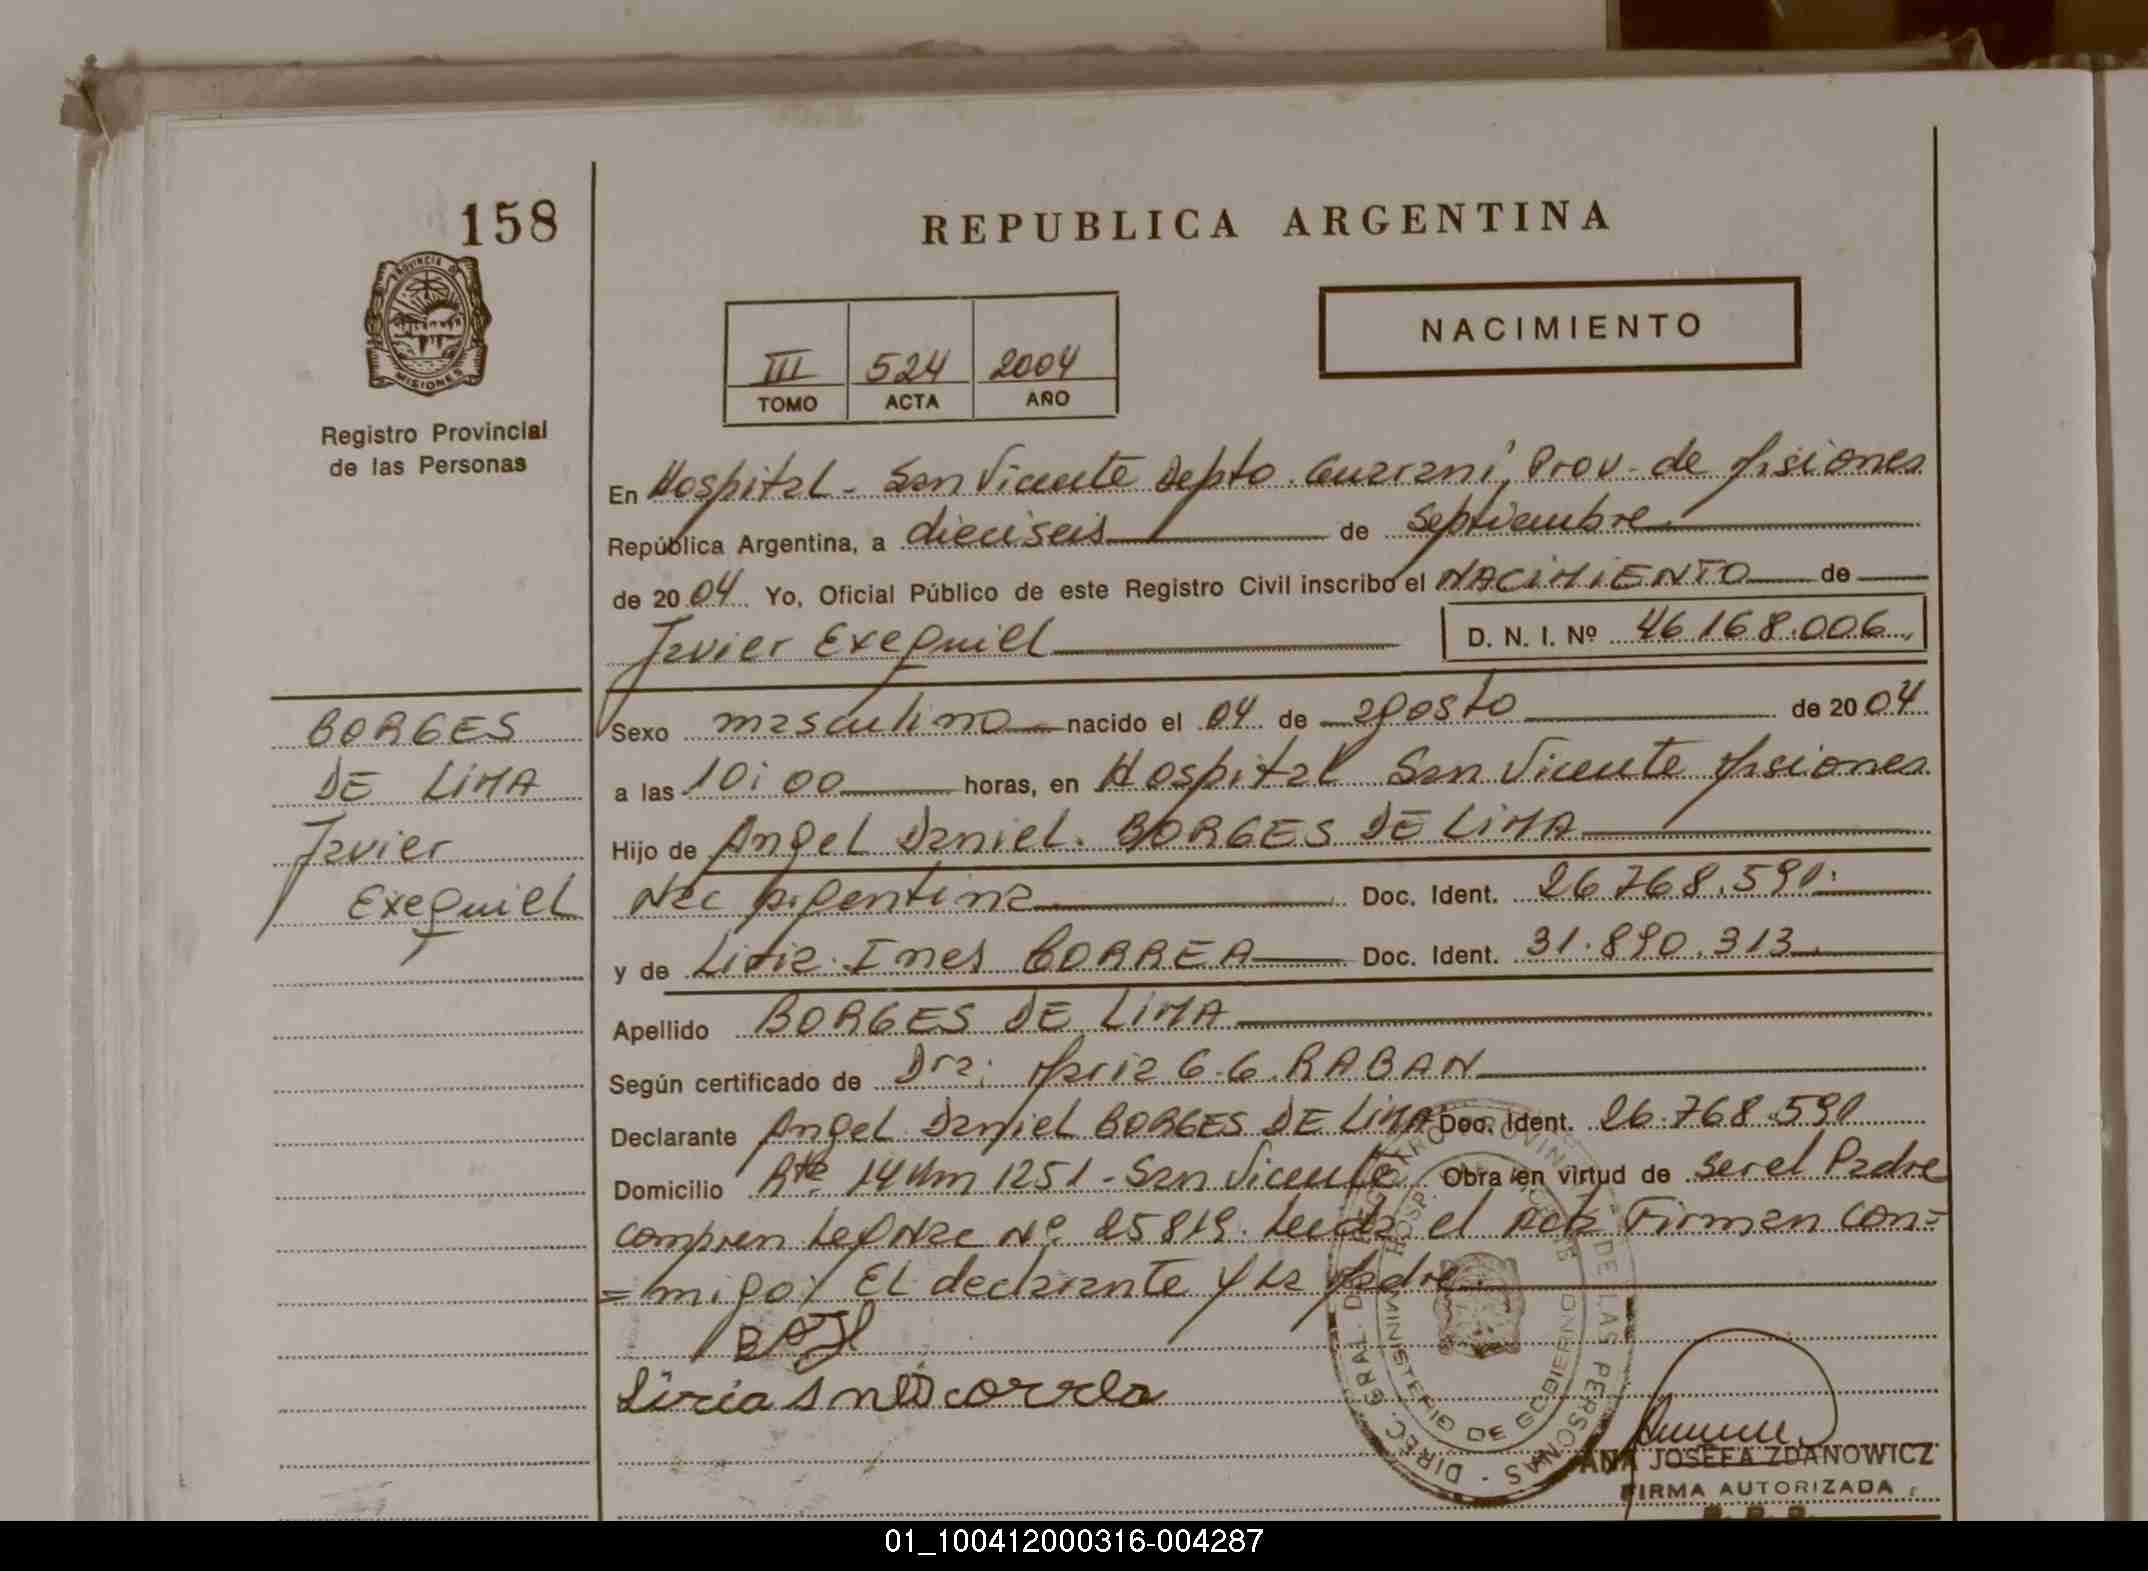 158
REPUBLICA ARGENTINA
PROVINCIA DE MISIONES
Registro Provincial
de las Personas
NACIMIENTO
III 524 2004
TOMO ACTA AÑO
En Hospital - San Vicente Depto. Guaraní, Prov. de Misiones
República Argentina, a dieciseis de Septiembre
de 2004 Yo, Oficial Público de este Registro Civil inscribo el NACIMIENTO de
Javier Exequiel D. N. I. Nº 46.168.006
BORGES
DE LIMA
Javier
Exequiel
Sexo masculino nacido el 04 de agosto de 2004
a las 10:00 horas, en Hospital San Vicente Misiones
Hijo de Angel Daniel BORGES DE LIMA
Nac Argentina Doc. Ident. 26.768.591
y de Liria Ines CORREA Doc. Ident. 31.890.313
Apellido BORGES DE LIMA
Según certificado de Dra: Maria G.G. RABAN
Declarante Angel Daniel BORGES DE LIMA Doc. Ident. 26.768.591
Domicilio Rta 14 Km 1251 - San Vicente Obra en virtud de ser el Padre
Nac Nº 25819. Leida el Acta Firman con=
=migo; El declarante y la Madre
Liria Ines correa
DIREC. GRAL. DEL REGISTRO PROVINCIAL DE LAS PERSONAS
MINISTERIO DE GOBIERNO
ANA JOSEFA ZDANOWICZ
FIRMA AUTORIZADA
01_100412000316-004287